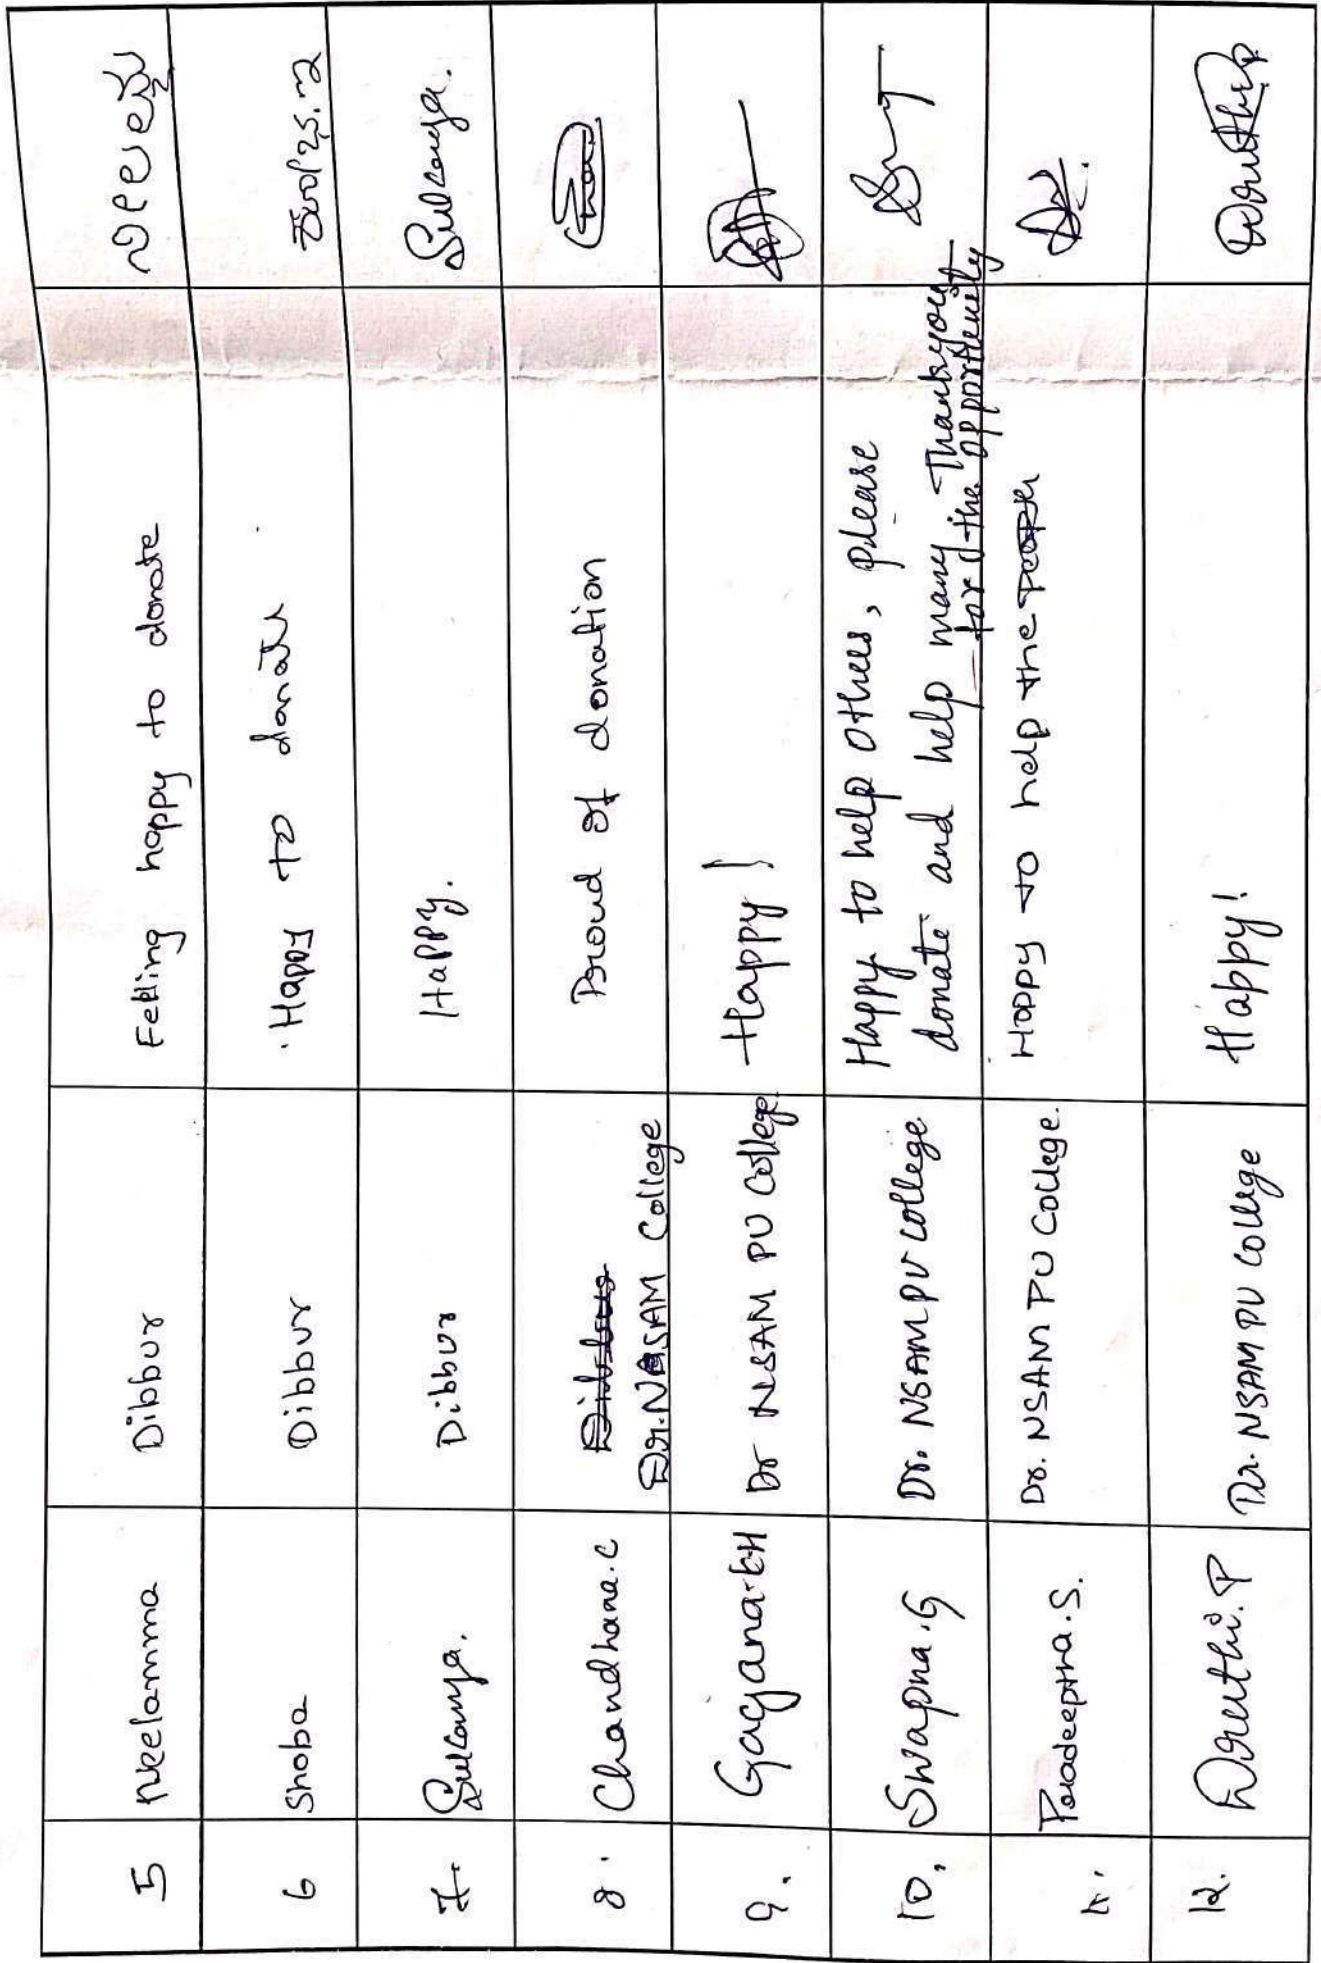 5 Neelamma Dibbur Feeling happy to donate ನೀಲಮ್ಮ
6 Shoba Dibbur Happy to donate
7. Sukanya. Dibbur Happy. Sukanya.
8. Chandhana.C Dibbur Proud of donation
Dr.NSAM College
9. Gagana.K.H Dr NSAM PU College Happy!
10. Swapna.G Dr. NSAM PU College Happy to help others, please
donate and help many. Thankyou
for the opportunity
11. Pradeeptha.S. Dr. NSAM PU College. Happy to help the
12. Druthi.P Dr. NSAM PU College Happy! Druthi.P